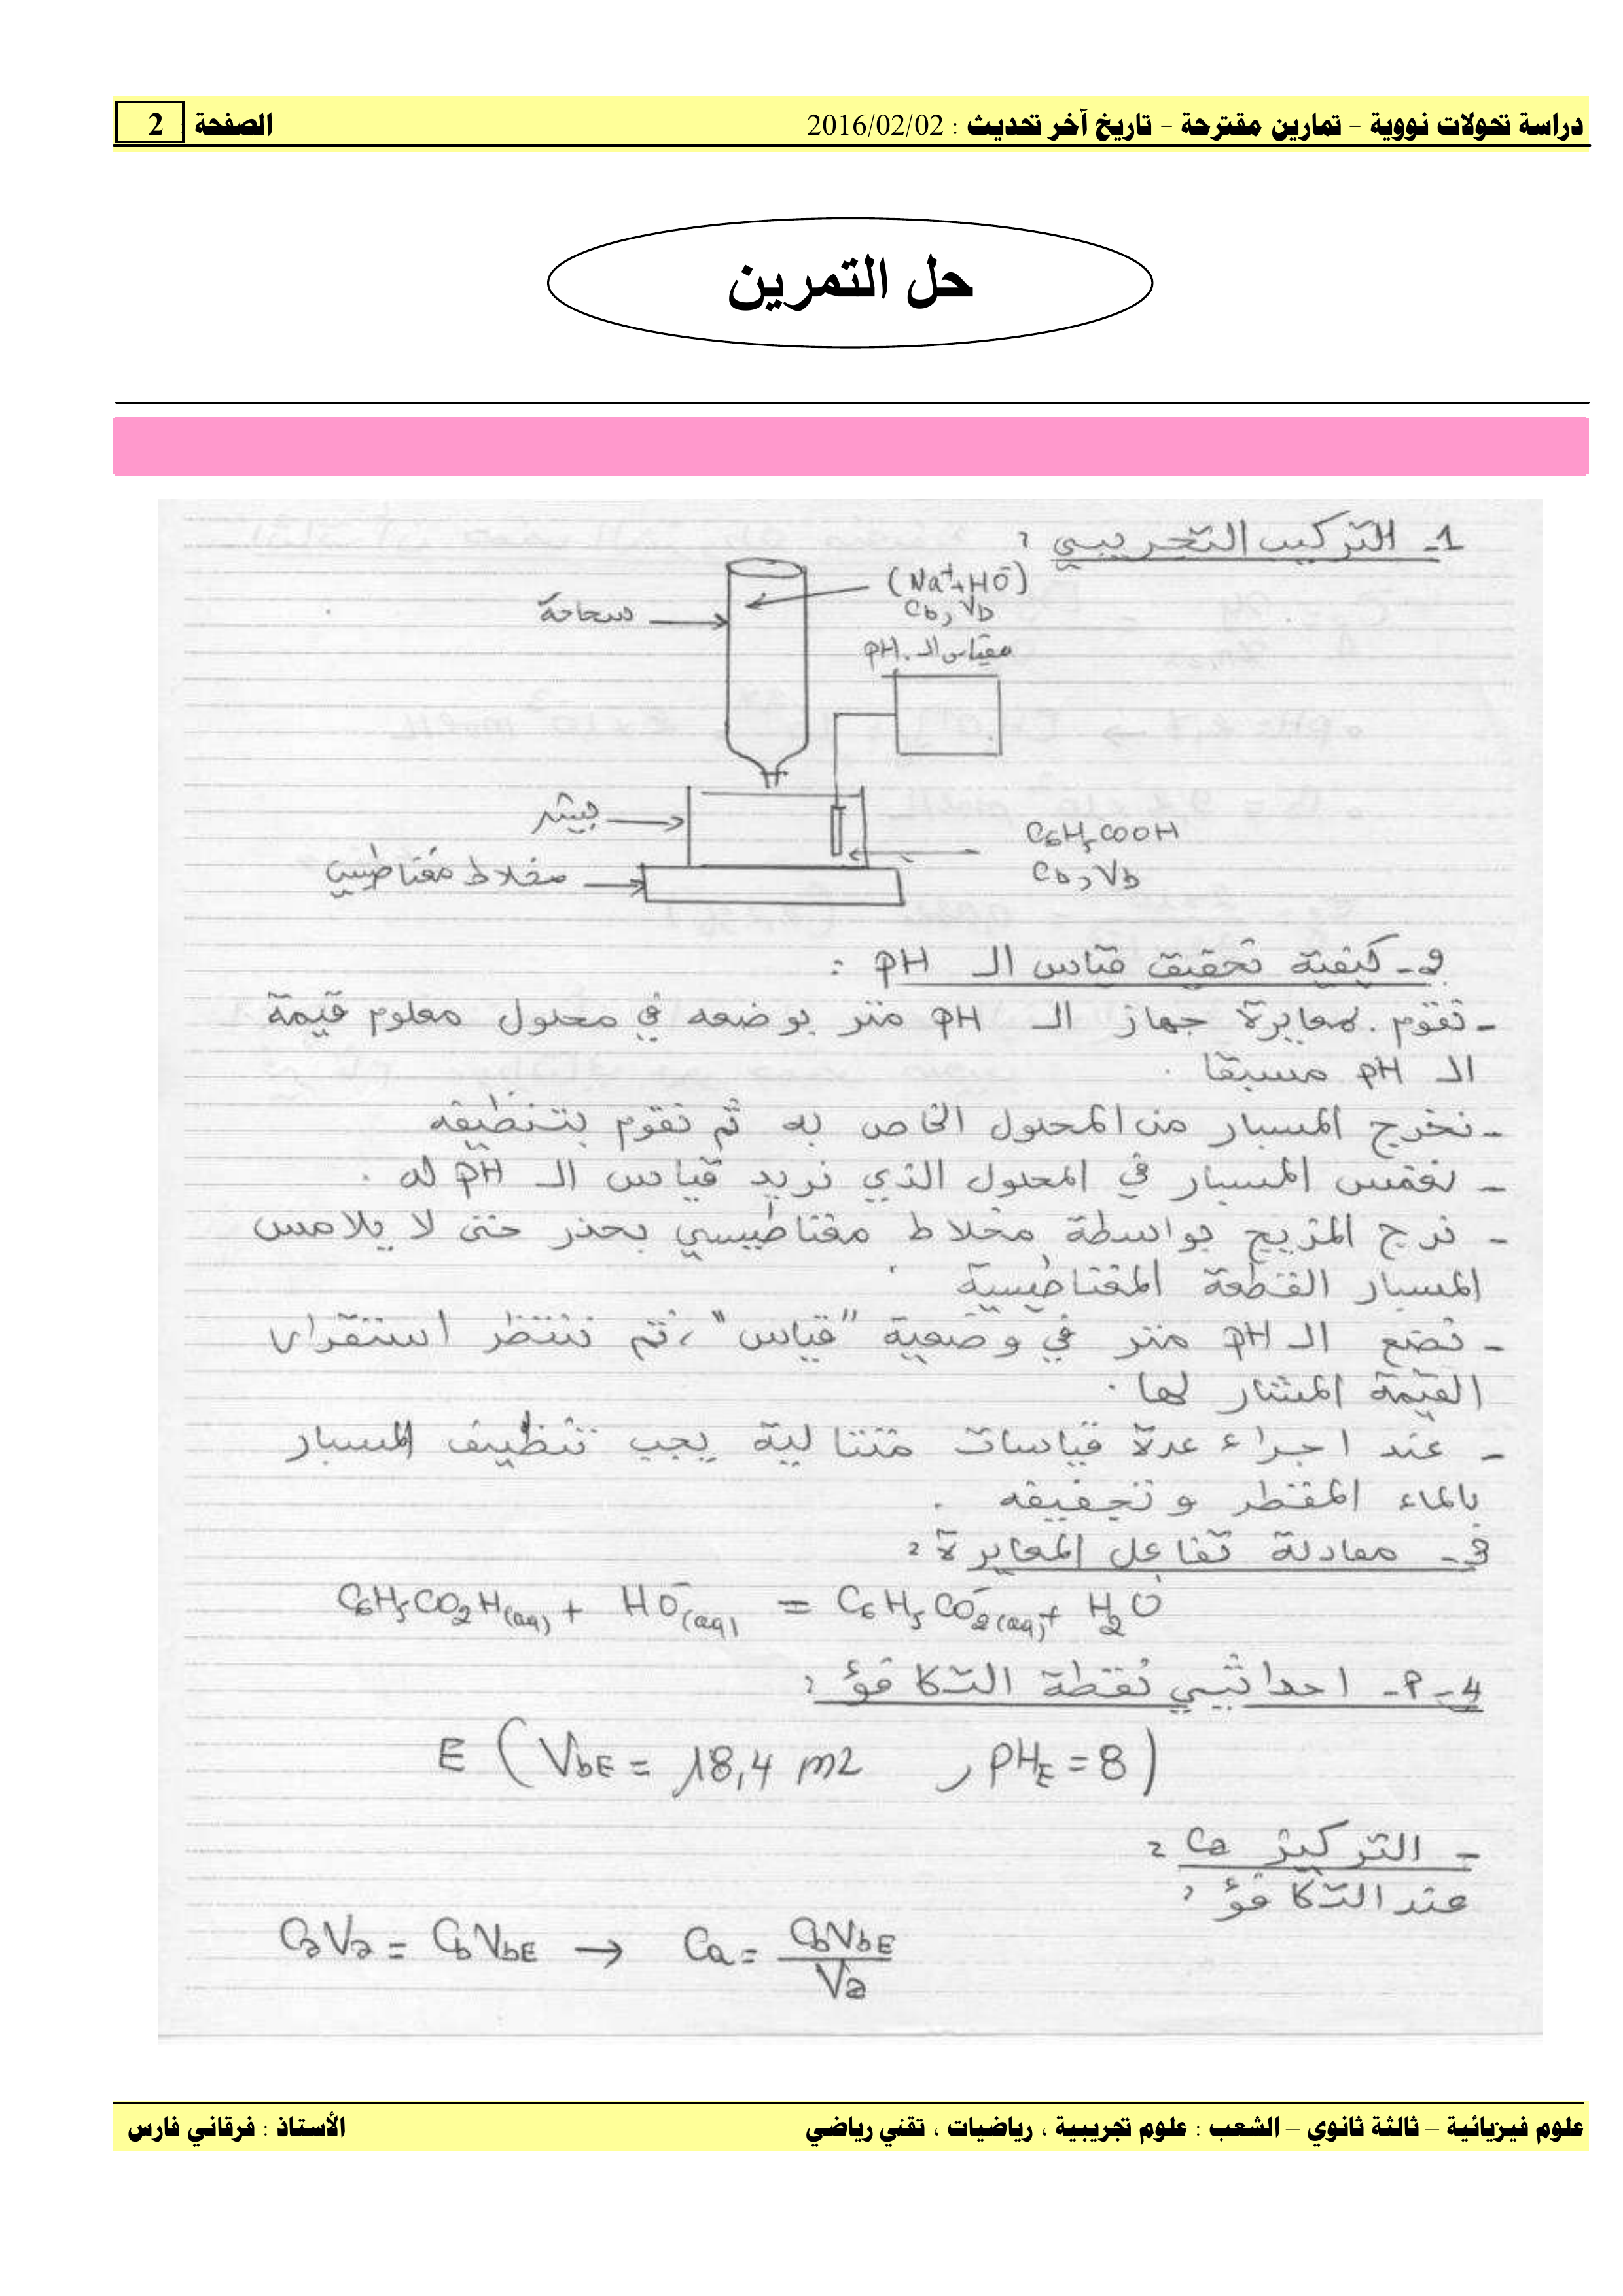 دراسة تحولات نووية – تمارين مقترحة – تاريخ آخر تحديث : 2016/02/02 الصفحة 2
حل التمرين
1- التركيب التجريبي :
(Na⁺+HO⁻)
Cb, Vb
سحاحة
مقياس الـ pH
بيشر
C₆H₅COOH
Cb, Vb
مخلاط مغناطيسي
2- كيفية تحقيق قياس الـ pH :
- نقوم بمعايرة جهاز الـ pH متر بوضعه في محلول معلوم قيمة
الـ pH مسبقا .
- نخرج المسبار من المحلول الخاص به ثم نقوم بتنظيفه
- نغمس المسبار في المحلول الذي نريد قياس الـ pH له .
- نرج المزيج بواسطة مخلاط مغناطيسي بحذر حتى لا يلامس
المسبار القطعة المغناطيسية .
- نضع الـ pH متر في وضعية "قياس"، ثم ننتظر استقرار
القيمة المشار لها .
- عند اجراء عدة قياسات متتالية يجب تنظيف المسبار
بالماء المقطر و تجفيفه .
3- معادلة تفاعل المعايرة :
C₆H₅CO₂H(aq) + HO⁻(aq) = C₆H₅CO₂⁻(aq) + H₂O
4-أ- احداثيي نقطة التكافؤ :
E ( VbE = 18,4 mL , pHE = 8 )
- التركيز Ca :
عند التكافؤ :
CaVa = CbVbE → Ca = CbVbE / Va
علوم فيزيائية – ثالثة ثانوي – الشعب : علوم تجريبية ، رياضيات ، تقني رياضي الأستاذ : فرقاني فارس